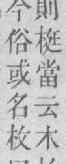 則梃當云木
今俗或名枚